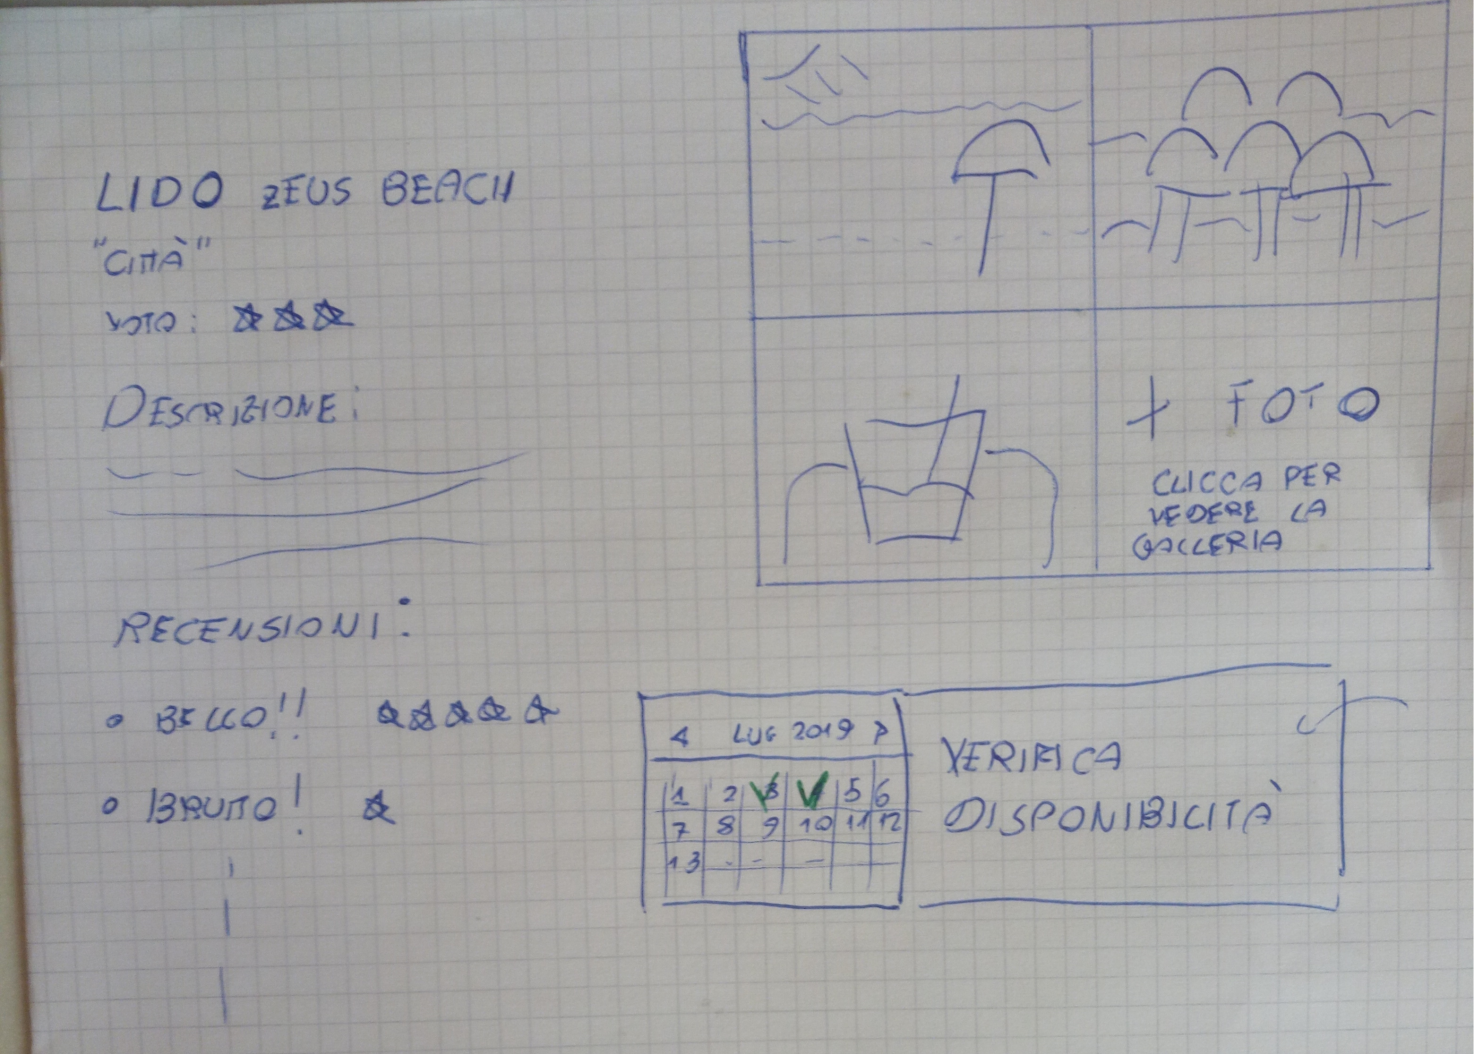 LIDO ZEUS BEACH
"CITTÀ"
VOTO:
DESCRIZIONE:
RECENSIONI:
• BELLO!!
• BRUTTO!
+ FOTO
CLICCA PER
VEDERE LA
GALLERIA
LUG 2019
1 2 3 5 6
7 8 9 10 11 12
13
VERIFICA
DISPONIBILITÀ